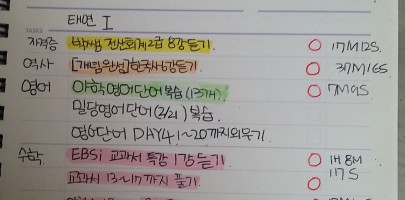 태연 I
TASKS
자격증 박쌤 전산회계2급 8강듣기. 17M12S.
역사 [개념완성]한국사6강듣기. 37M16S.
영어 아학영어단어복습(13개). 7M9S
밀당영어단어(2/21) 복습.
영어단어 DAY41~20까지외우기.
수학 EBSi 교과서 특강 1강듣기. 1H 8M
교과서 13~17까지 풀기. 17S